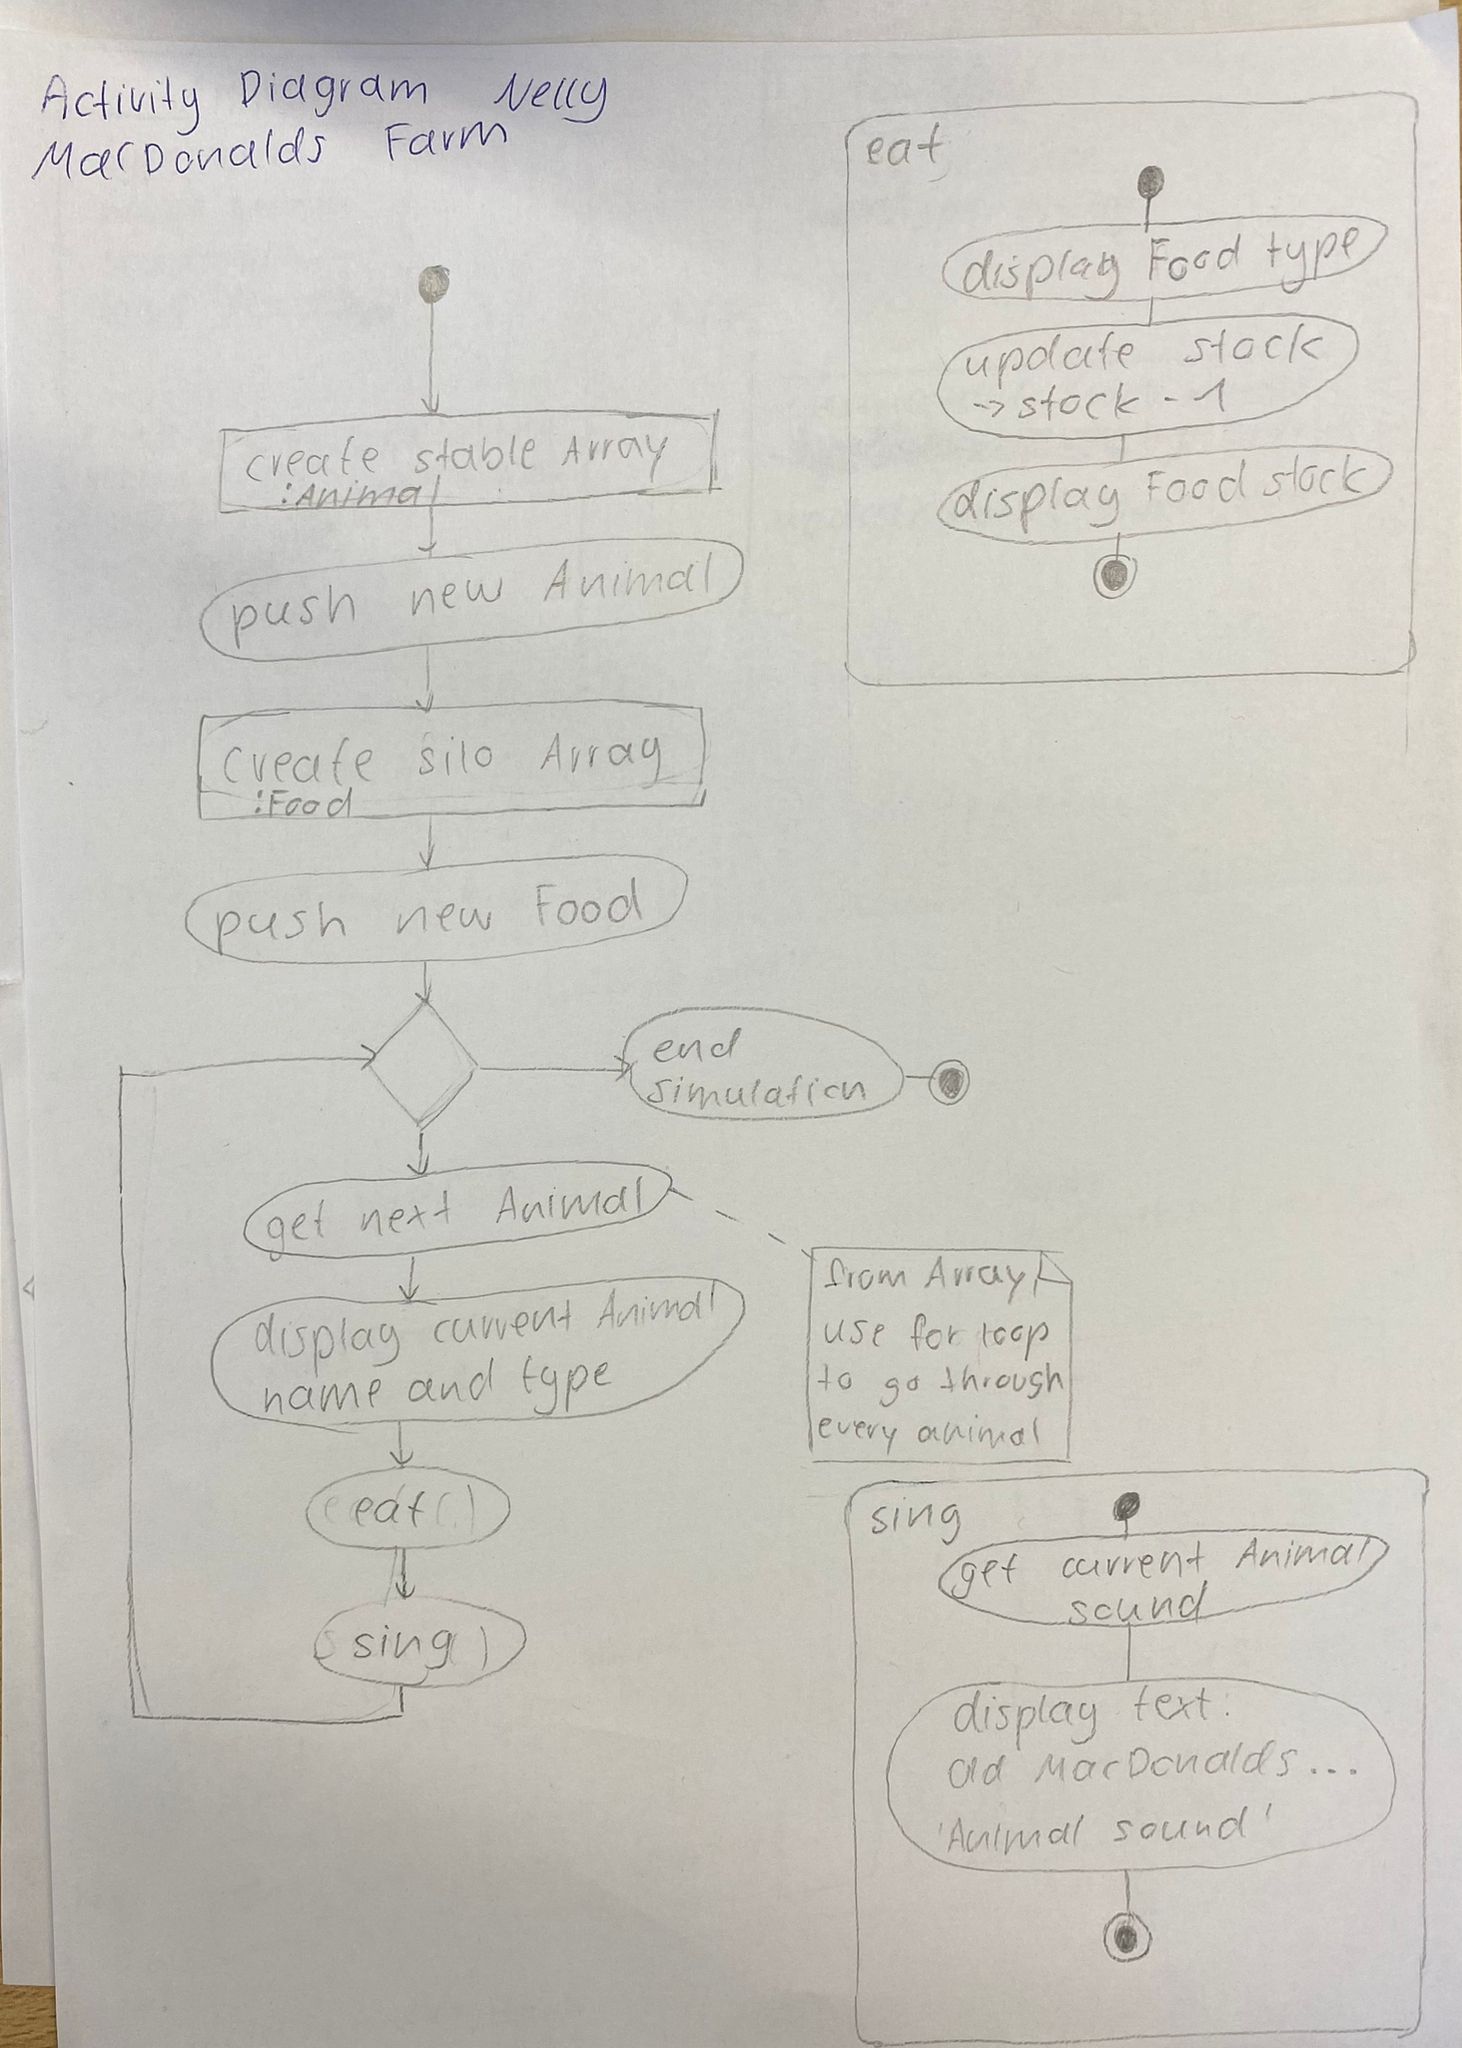 Activity Diagram Nelly
MacDonalds Farm
create stable Array
:Animal
push new Animal
create silo Array
:Food
push new Food
end
simulation
get next Animal
from Array,
use for loop
to go through
every animal
display current Animal
name and type
eat()
sing()
eat
display Food type
update stock
→ stock - 1
display Food stock
sing
get current Animal
sound
display text:
old MacDonalds...
'Animal sound'